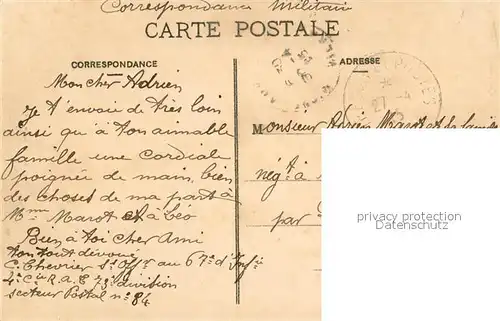 Correspondance Militaire
CARTE POSTALE
CORRESPONDANCE
ADRESSE
Mon cher Adrien
Je t'envoie de très loin
ainsi qu'à ton aimable
famille une cordiale
poignée de main, bien
des choses de ma part à
Mme Marot et à Léo
Bien à toi cher Ami
Ton tout dévoué
C. Chevrier St Offr au 67e d'Infie
4e Cie R.A.E 73e division
Secteur Postal no 84
Monsieur Adrien Marot et sa famille
négt à
par
27-4
privacy protection
Datenschutz